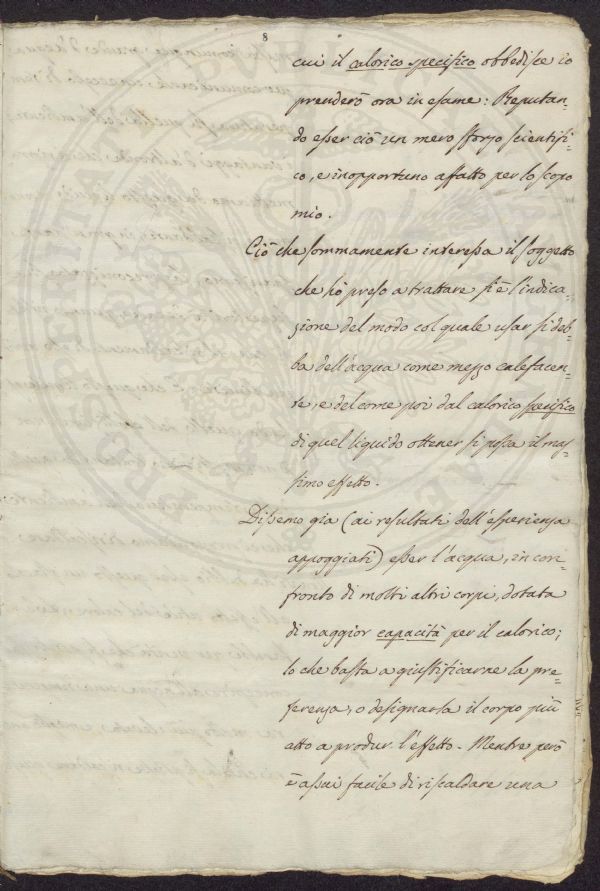 8
cui il calorico specifico obbedisce io
prenderò ora in esame: Reputan-
do esser ciò un mero sforzo scientifi-
co, e inopportuno affatto per lo scopo
mio.
Ciò che sommamente interessa il soggetto
che hò preso a trattare si è l'indica-
zione del modo col quale usar si deb-
ba dell'acqua come mezzo calefacen-
te, e del come poi dal calorico specifico
di quel liquido ottener si possa il mas-
simo effetto.
Dissemo gia (ai resultati dell'esperienza
appoggiati) esser l'acqua, in con-
fronto di molti altri corpi, dotata
di maggior capacità per il calorico;
lo che basta a giustificarne la pre-
ferenza, o designarla il corpo più
atto a produr l'effetto. Mentre però
è assai facile di riscaldare una